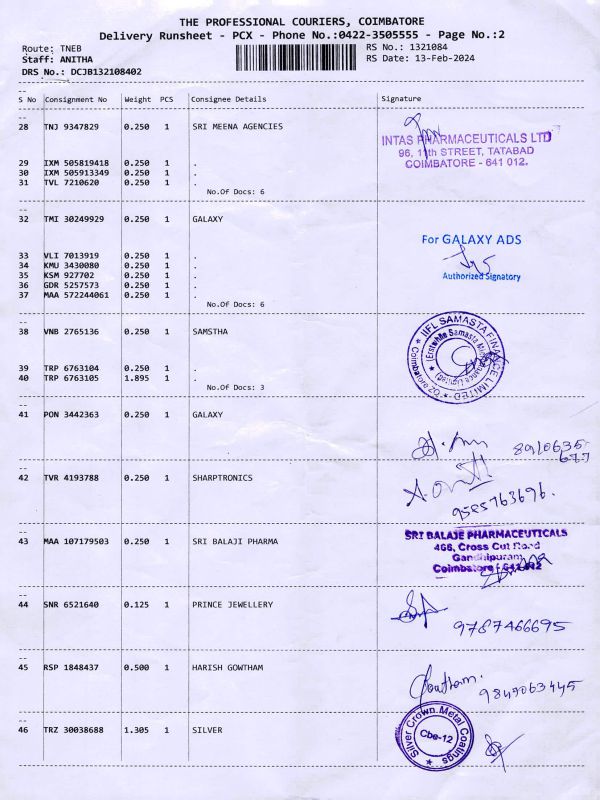 THE PROFESSIONAL COURIERS, COIMBATORE
Delivery Runsheet - PCX - Phone No.:0422-3505555 - Page No.:2
Route: TNEB RS No.: 1321084
Staff: ANITHA RS Date: 13-Feb-2024
DRS No.: DCJB132108402
--
S No Consignment No Weight PCS Consignee Details Signature
--
28 TNJ 9347829 0.250 1 SRI MEENA AGENCIES
INTAS PHARMACEUTICALS LTD
96, 11th STREET, TATABAD
COIMBATORE - 641 012.
29 IXM 505819418 0.250 1 .
30 IXM 505913349 0.250 1 .
31 TVL 7210620 0.250 1 .
No.Of Docs: 6
--
32 TMI 30249929 0.250 1 GALAXY
For GALAXY ADS
Authorized Signatory
33 VLI 7013919 0.250 1 .
34 KMU 3430080 0.250 1 .
35 KSM 927702 0.250 1 .
36 GDR 5257573 0.250 1 .
37 MAA 572244061 0.250 1 .
No.Of Docs: 6
--
38 VNB 2765136 0.250 1 SAMSTHA
IIFL SAMASTA FINANCE LIMITED
(Erstwhile Samasta
39 TRP 6763104 0.250 1 .
40 TRP 6763105 1.895 1 .
No.Of Docs: 3
--
41 PON 3442363 0.250 1 GALAXY
8910635
677
--
42 TVR 4193788 0.250 1 SHARPTRONICS
9585763696.
--
43 MAA 107179503 0.250 1 SRI BALAJI PHARMA
SRI BALAJE PHARMACEUTICALS
466, Cross Cut Road
Gandhipuram
Coimbatore - 641 012
--
44 SNR 6521640 0.125 1 PRINCE JEWELLERY
9787466695
--
45 RSP 1848437 0.500 1 HARISH GOWTHAM
Gowtham.
9849063445
--
46 TRZ 30038688 1.305 1 SILVER
Silver Crown Metal Coatings
Cbe-12